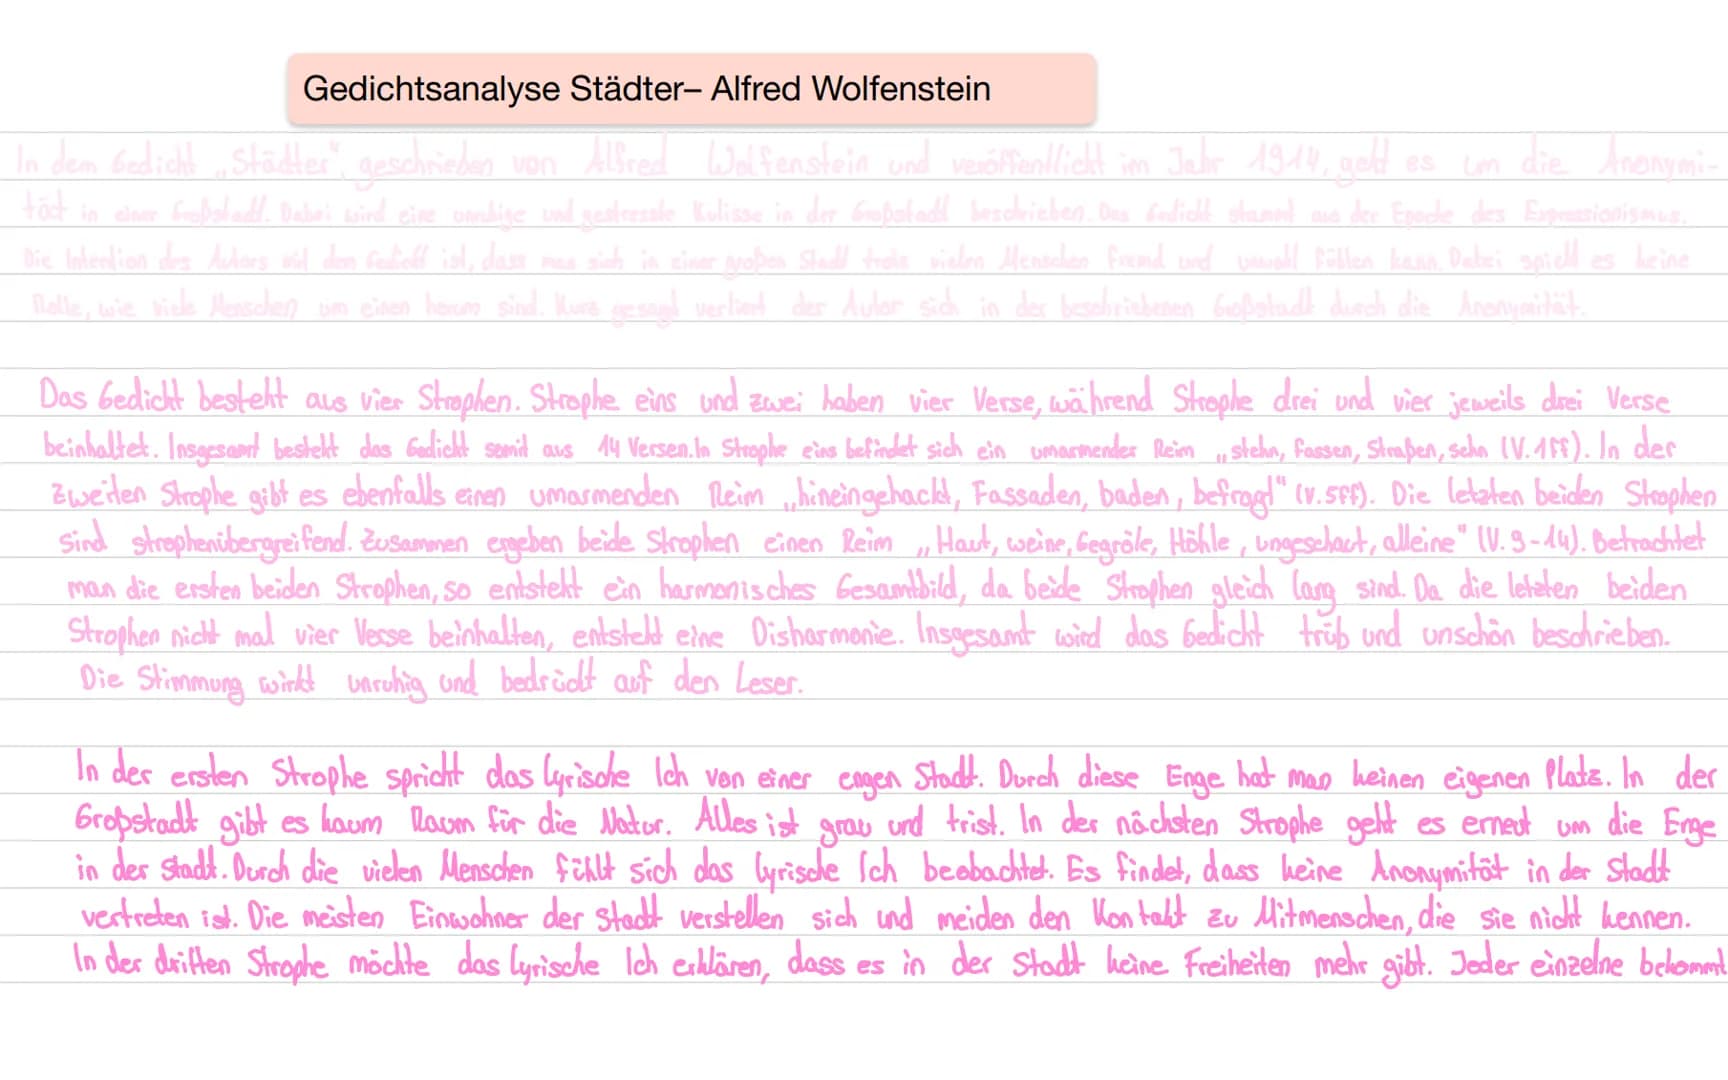 Gedichtsanalyse Städter– Alfred Wolfenstein
In dem Gedicht „Städter", geschrieben von Alfred Wolfenstein und veröffentlicht im Jahr 1914, geht es um die Anonymi-
tät in einer Großstadt. Dabei wird eine unruhige und gestresste Kulisse in der Großstadt beschrieben. Das Gedicht stammt aus der Epoche des Expressionismus.
Die Intention des Autors mit dem Gedicht ist, dass man sich in einer großen Stadt trotz vielen Menschen fremd und unwohl fühlen kann. Dabei spielt es keine
Rolle, wie viele Menschen um einen herum sind. Kurz gesagt verliert der Autor sich in der beschriebenen Großstadt durch die Anonymität.
Das Gedicht besteht aus vier Strophen. Strophe eins und zwei haben vier Verse, während Strophe drei und vier jeweils drei Verse
beinhaltet. Insgesamt besteht das Gedicht somit aus 14 Versen. In Strophe eins befindet sich ein umarmender Reim „stehn, fassen, Straßen, sehn (V. 1ff). In der
zweiten Strophe gibt es ebenfalls einen umarmenden Reim „hineingehackt, Fassaden, baden, befragt" (V. 5ff). Die letzten beiden Strophen
sind strophenübergreifend. Zusammen ergeben beide Strophen einen Reim „Haut, weine, Gegröle, Höhle, ungeschaut, alleine" (V. 9-14). Betrachtet
man die ersten beiden Strophen, so entsteht ein harmonisches Gesamtbild, da beide Strophen gleich lang sind. Da die letzten beiden
Strophen nicht mal vier Verse beinhalten, entsteht eine Disharmonie. Insgesamt wird das Gedicht trüb und unschön beschrieben.
Die Stimmung wirkt unruhig und bedrückt auf den Leser.
In der ersten Strophe spricht das lyrische Ich von einer engen Stadt. Durch diese Enge hat man keinen eigenen Platz. In der
Großstadt gibt es kaum Raum für die Natur. Alles ist grau und trist. In der nächsten Strophe geht es erneut um die Enge
in der Stadt. Durch die vielen Menschen fühlt sich das lyrische Ich beobachtet. Es findet, dass keine Anonymität in der Stadt
vertreten ist. Die meisten Einwohner der Stadt verstellen sich und meiden den Kontakt zu Mitmenschen, die sie nicht kennen.
In der dritten Strophe möchte das lyrische Ich erklären, dass es in der Stadt keine Freiheiten mehr gibt. Jeder einzelne bekommt